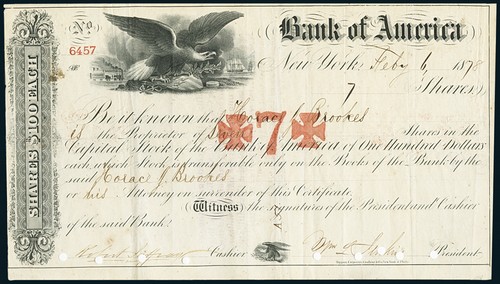 No.
6457
Bank of America
New York Feby 6 1878
7 Shares
SHARES $100 EACH
Be it known that Horace J. Brookes
is the Proprietor of Seven Shares in the
7
Capital Stock of the Bank of America of One Hundred Dollars
each which Stock is transferable only on the Books of the Bank by the
said Horace J. Brookes
or his Attorney on surrender of this Certificate.
Witness the signatures of the President and Cashier
of the said Bank.
Cashier
Wm President